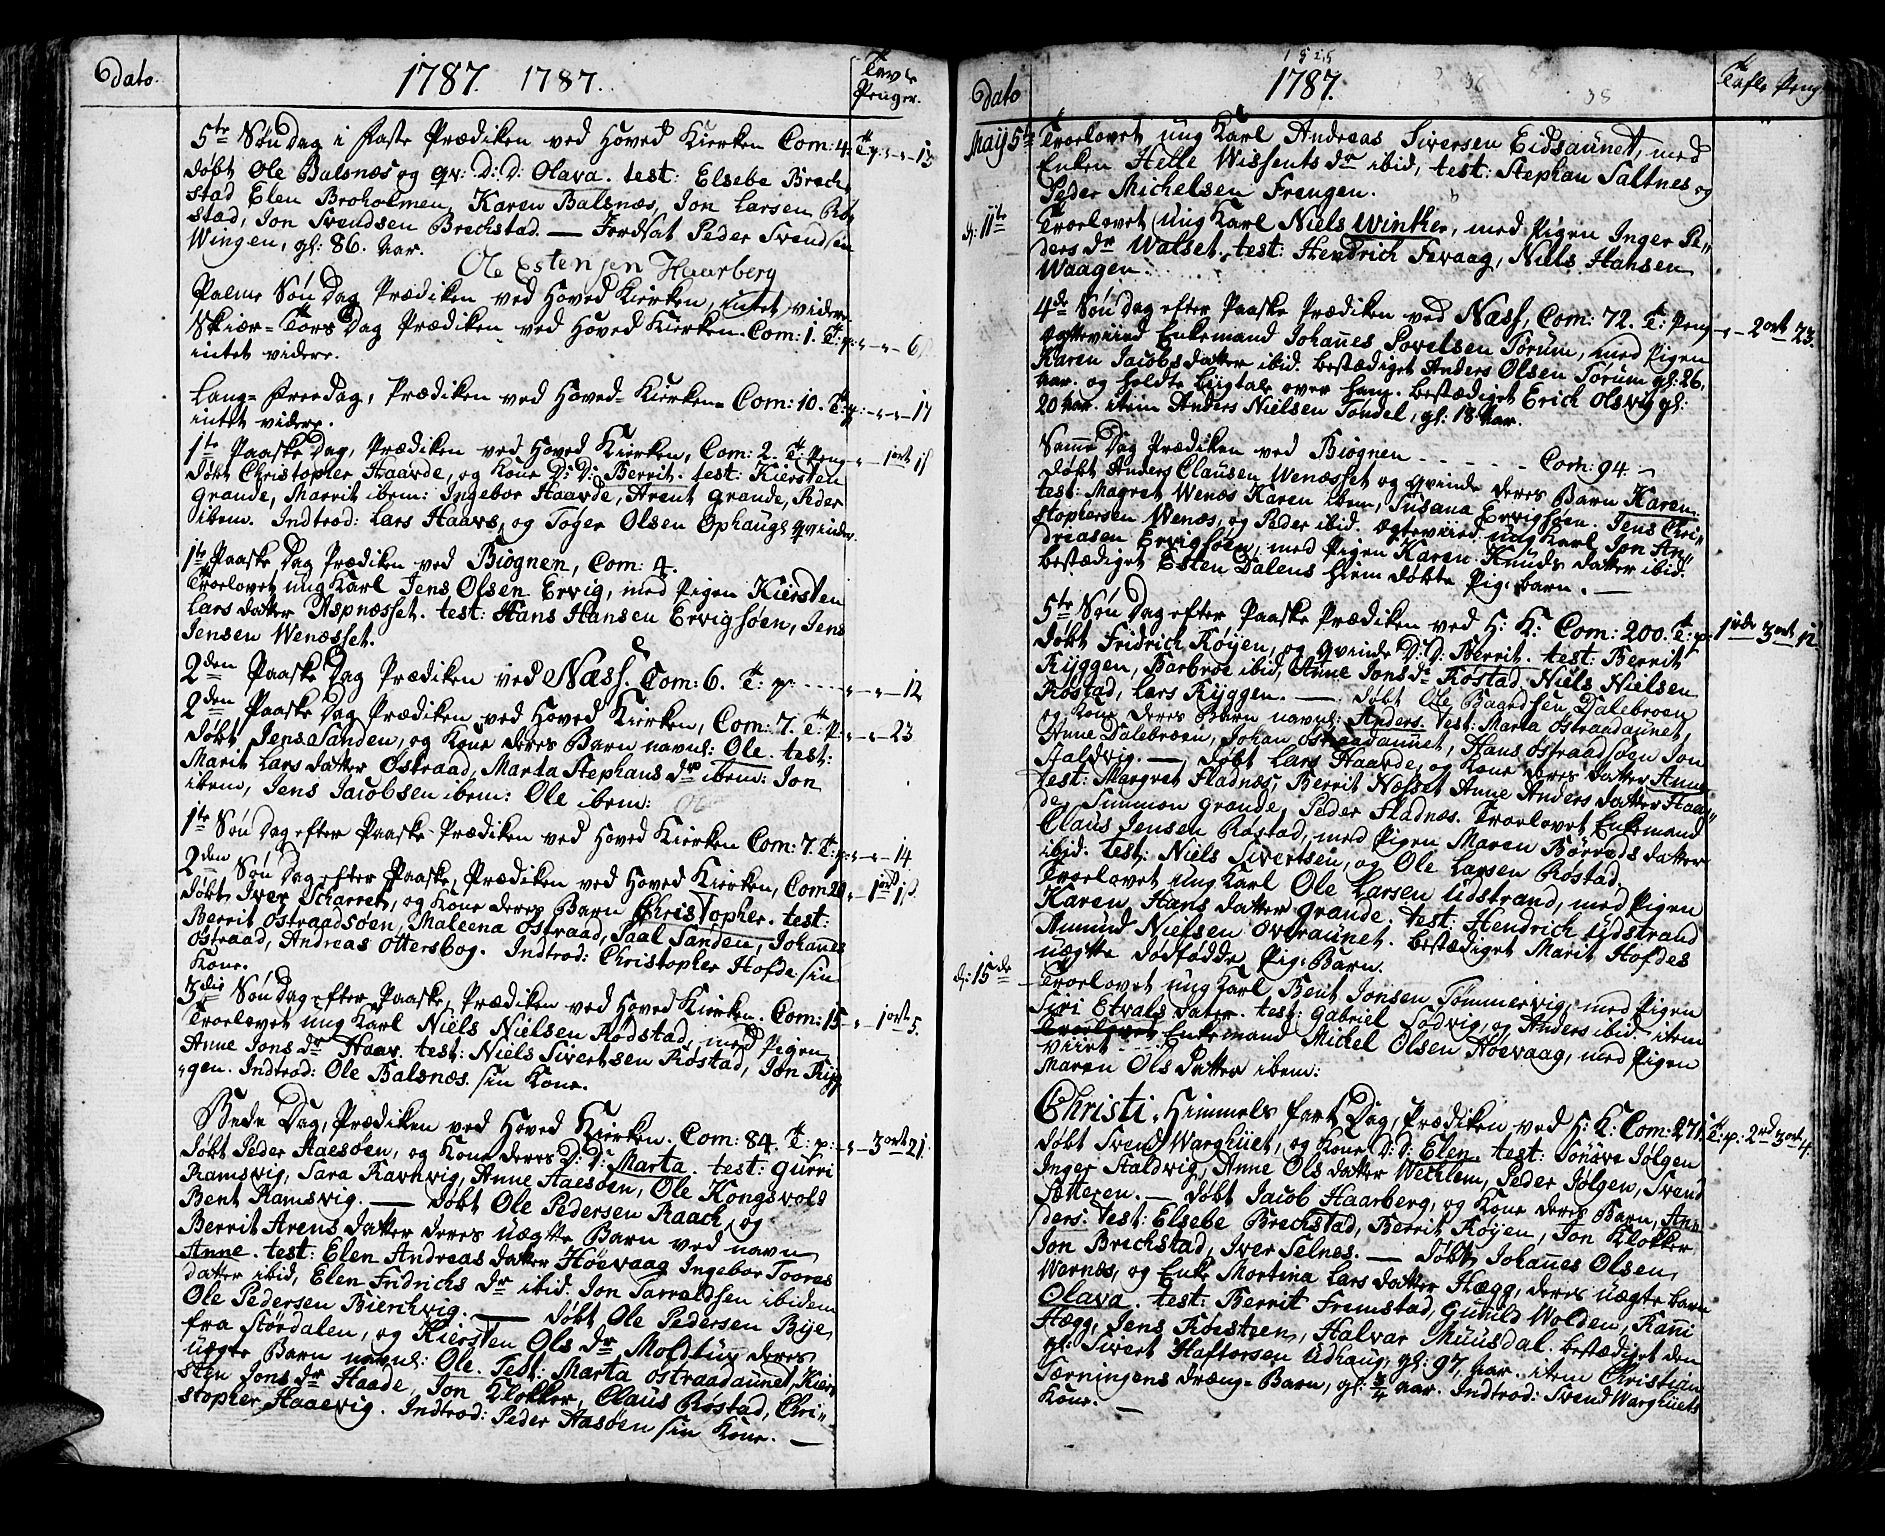 dato.
1787. 1787.
Tavle
Penger.
5te Søndag i Faste Prædiken ved Hoved Kierken Com: 4. T: p: „-„-13
døbt Ole Balsnæs og qv: D: D: Olava. test: Elsebe Brech-
stad Elen Broholmen, Karen Balsnæs, Jon Larsen Røs
stad, Jon Svendsen Brechstad. — Jordsat Peder Svendsen
Wingen, gl: 86. aar.
Ole Estensen Haarberg
Palme Søndag Prædiken ved Hoved Kierken, intet videre
Skiær-Torsdag Prædiken ved Hoved Kierken Com: 1. T: p: „-„-6
intet videre.
Lang-Freedag, Prædiken ved Hoved-Kierken Com: 10. T: p: „-„-17
intet videre.
1te Paaske Dag, Prædiken ved Hoved Kierken, Com: 2. T: Peng „-1ort 11
døbt Christopher Haarde, og Kone D: D: Berrit. test: Kiersten
Grande, Marrit ibem: Ingebor Haarde, Arent Grande, Peder
ibem. Indtrod: Lars Haavs, og Toger Olsen Ophaugs qvinde.
1te Paaske Dag Prædiken ved Biognen, Com: 4.
Troelovet ung Karl Jens Olsen Ervig, med Pigen Kiersten
Lars datter Aspnæsset. test: Hans Hansen Ervigsøen, Jens
Jensen Wenæsset.
2den Paaske Dag Prædiken ved Næss. Com: 6. T: p: „-„-12
2den Paaske Dag Prædiken ved Hoved Kierken, Com: 7. T: P: „-„-23
døbt Jens Sanden, og Kone deres Barn navnl: Ole. test:
Marit Lars datter Ostraad, Marta Stephans dr ibem: Jon
ibem, Jens Jacobsen ibem: Ole ibem:
1te Søndag efter Paaske Prædiken ved Hoved Kierken Com: 7. T: p: „-„-14
2den Søndag efter Paaske, Prædiken ved Hoved Kierken, Com 20 „-1ort
døbt Iver Scharret, og Kone deres Barn Christopher. test:
Berrit Ostraadsøen, Maleena Ostraad, Paal Sanden, Johanes
Ostraad, Andreas Ottersbog. Indtrod: Christopher Hofde sin
Kone.
3die Søndag efter Paaske, Prædiken ved Hoved Kierken. Com: 15 „-1ort 5.
Troelovet ung Karl Niels Nielsen Rødstad, med Pigen
Anne Jons dr Haav. test: Niels Sivertsen Røstad, Jon Rygg
„gen. Indtrod: Ole Balsnæs sin Kone.
Bede Dag, Prædiken ved Hoved Kierken. Com: 84. T: p: „-3ort 21.
døbt Peder Haesøen, og Kone deres D: D: Marta. test: Gurri
Ramsvig, Sara Ravnvig, Anne Aaesøen, Ole Kongsvold
Bent Ramsvig. — døbt Ole Pedersen Raach, og
Berrit Arens datter deres uægte Barn ved navn
Anne. test: Elen Andreas datter Høevaag Ingebor Toores
datter ibid, Elen Fridrichs dr ibid. Jon Tarraldsen ibidem
Ole Pedersen Bierchvig. — døbt Ole Pedersen Bye
fra Størdalen, og Kiersten Ols dr Moldtuv deres
uægte Barn navnl: Ole. Test: Marta Ostraadaunet, Kier
sten Jons dr Haade, Jon Klokker, Claus Røstad, Chri„
stopher Haaevig. Indtrod: Peder Aasøen sin Kone. —
dato
1787.
Tafle Peng
May 5te Troelovet ung Karl Andreas Siversen Eidsaunet, med
Enken Helle Wissents dr ibid, test: Stephan Saltnes og
Peder Michelsen Frengen.
d: 11te Troelovet ung Karl Niels Winther, med Pigen Inger Pe„
ders dr Walset. test: Hendrich Fevaag, Niels Hansen
Waagen.
4de Søndag efter Paaske Prædiken ved Næss, Com: 72. T: Peng „-2ort 23.
ægteviied Enkemand Johanes Povelsen Torum, med Pigen
Karen Jacobs datter ibid. bestædiget Anders Olsen Torum gl: 26.
aar. og holdte Liigtale over ham. bestædiget Erich Olsvig gl:
20 aar. item Anders Nielsen Tøndel, gl: 18 aar.
Same Dag Prædiken ved Biognen - - - - - - Com: 94. -
døbt Anders Clausen Wenæsset og qvinde deres Barn Karen.
test: Magret Wenæs Karen ibem, Susana Ervigsøen. Jens Chri„
stophersen Wenæs, og Peder ibid. ægteviied ung Karl Jon An„
dreasen Ervigsøen, med Pigen Karen Knuds datter ibid.
bestædiget Esten Dalens hiem døbte Pige barn. —
5te Søndag efter Paaske Prædiken ved H: K: Com: 200. T: p: 1rdr 3ort 12
døbt Fridrich Røyen, og qvinde D: D: Berrit. test: Berrit
Ryggen, Barbroe ibid, Anne Jons dr Røstad, Niels Nielsen
Røstad, Lars Ryggen. — døbt Ole Baardsen Dalebroen
og Kone deres Barn navnl: Anders. test: Marta Ostraadaunet,
Anne Dalebroen, Johan Ostraadaunet, Hans Ostraadsøen Jon
Staldvig. — døbt Lars Haarde, og Kone deres datter Anne
test: Margret Fladnæs, Berrit Næsset Anne Anders datter Haar„
de, Simmon Grande, Peder Fladnæs. Troelovet Enkemand
Claus Jensen Røstad, med Pigen Maren Børreds datter
ibid. test: Niels Sivertsen, og Ole Larsen Røstad.
Troelovet ung Karl Ole Larsen Udstrand, med Pigen
Karen Hans datter Grande. test: Hendrich Udstrand
Amund Nielsen Overaunet. bestædiget Marit Hofdes
uægte dødfødde Pig: Barn.
d: 15de Troelovet ung Karl Bent Jonsen Tømmervig, med Pigen
Siri Etvals dater. test: Gabriel Sødvig, og Anders ibid. item
Troelovet Enkemand Michel Olsen Høevaag, med Pigen
Viiet
Maren Ols datter ibem:
Christi Himmels fart Dag, Prædiken ved H: K: Com: 271. T: p: 2rd 3ort 4.
døbt Svend Warghüet, og Kone D: D: Elen. test: Sønave Jølgen
Inger Staldvig, Anne Ols datter Wechlem, Peder Jølgen, Svend
Sætteren. — døbt Jacob Haarberg, og Kone deres Barn, An„
ders. test: Elsebe Brechstad, Berrit Røyen, Jon Klokker
Jon Brechstad, Iver Selnes. — døbt Johanes Olsen
Warnæs, og Enke Mortina Lars datter Hægg, deres uægte barn
Olava. test: Berrit Fremstad, Gunild Wolden, Rani
Hægg, Jens Røisteen, Halvar Muusdal. bestædiget den
gl: Sivert Haftorsen Udhaug, gl: 97 aar. item Christian
Tærningens dreng-Barn, gl: 3/4 aar. Indtrod: Svend Warghüets
Kone. —